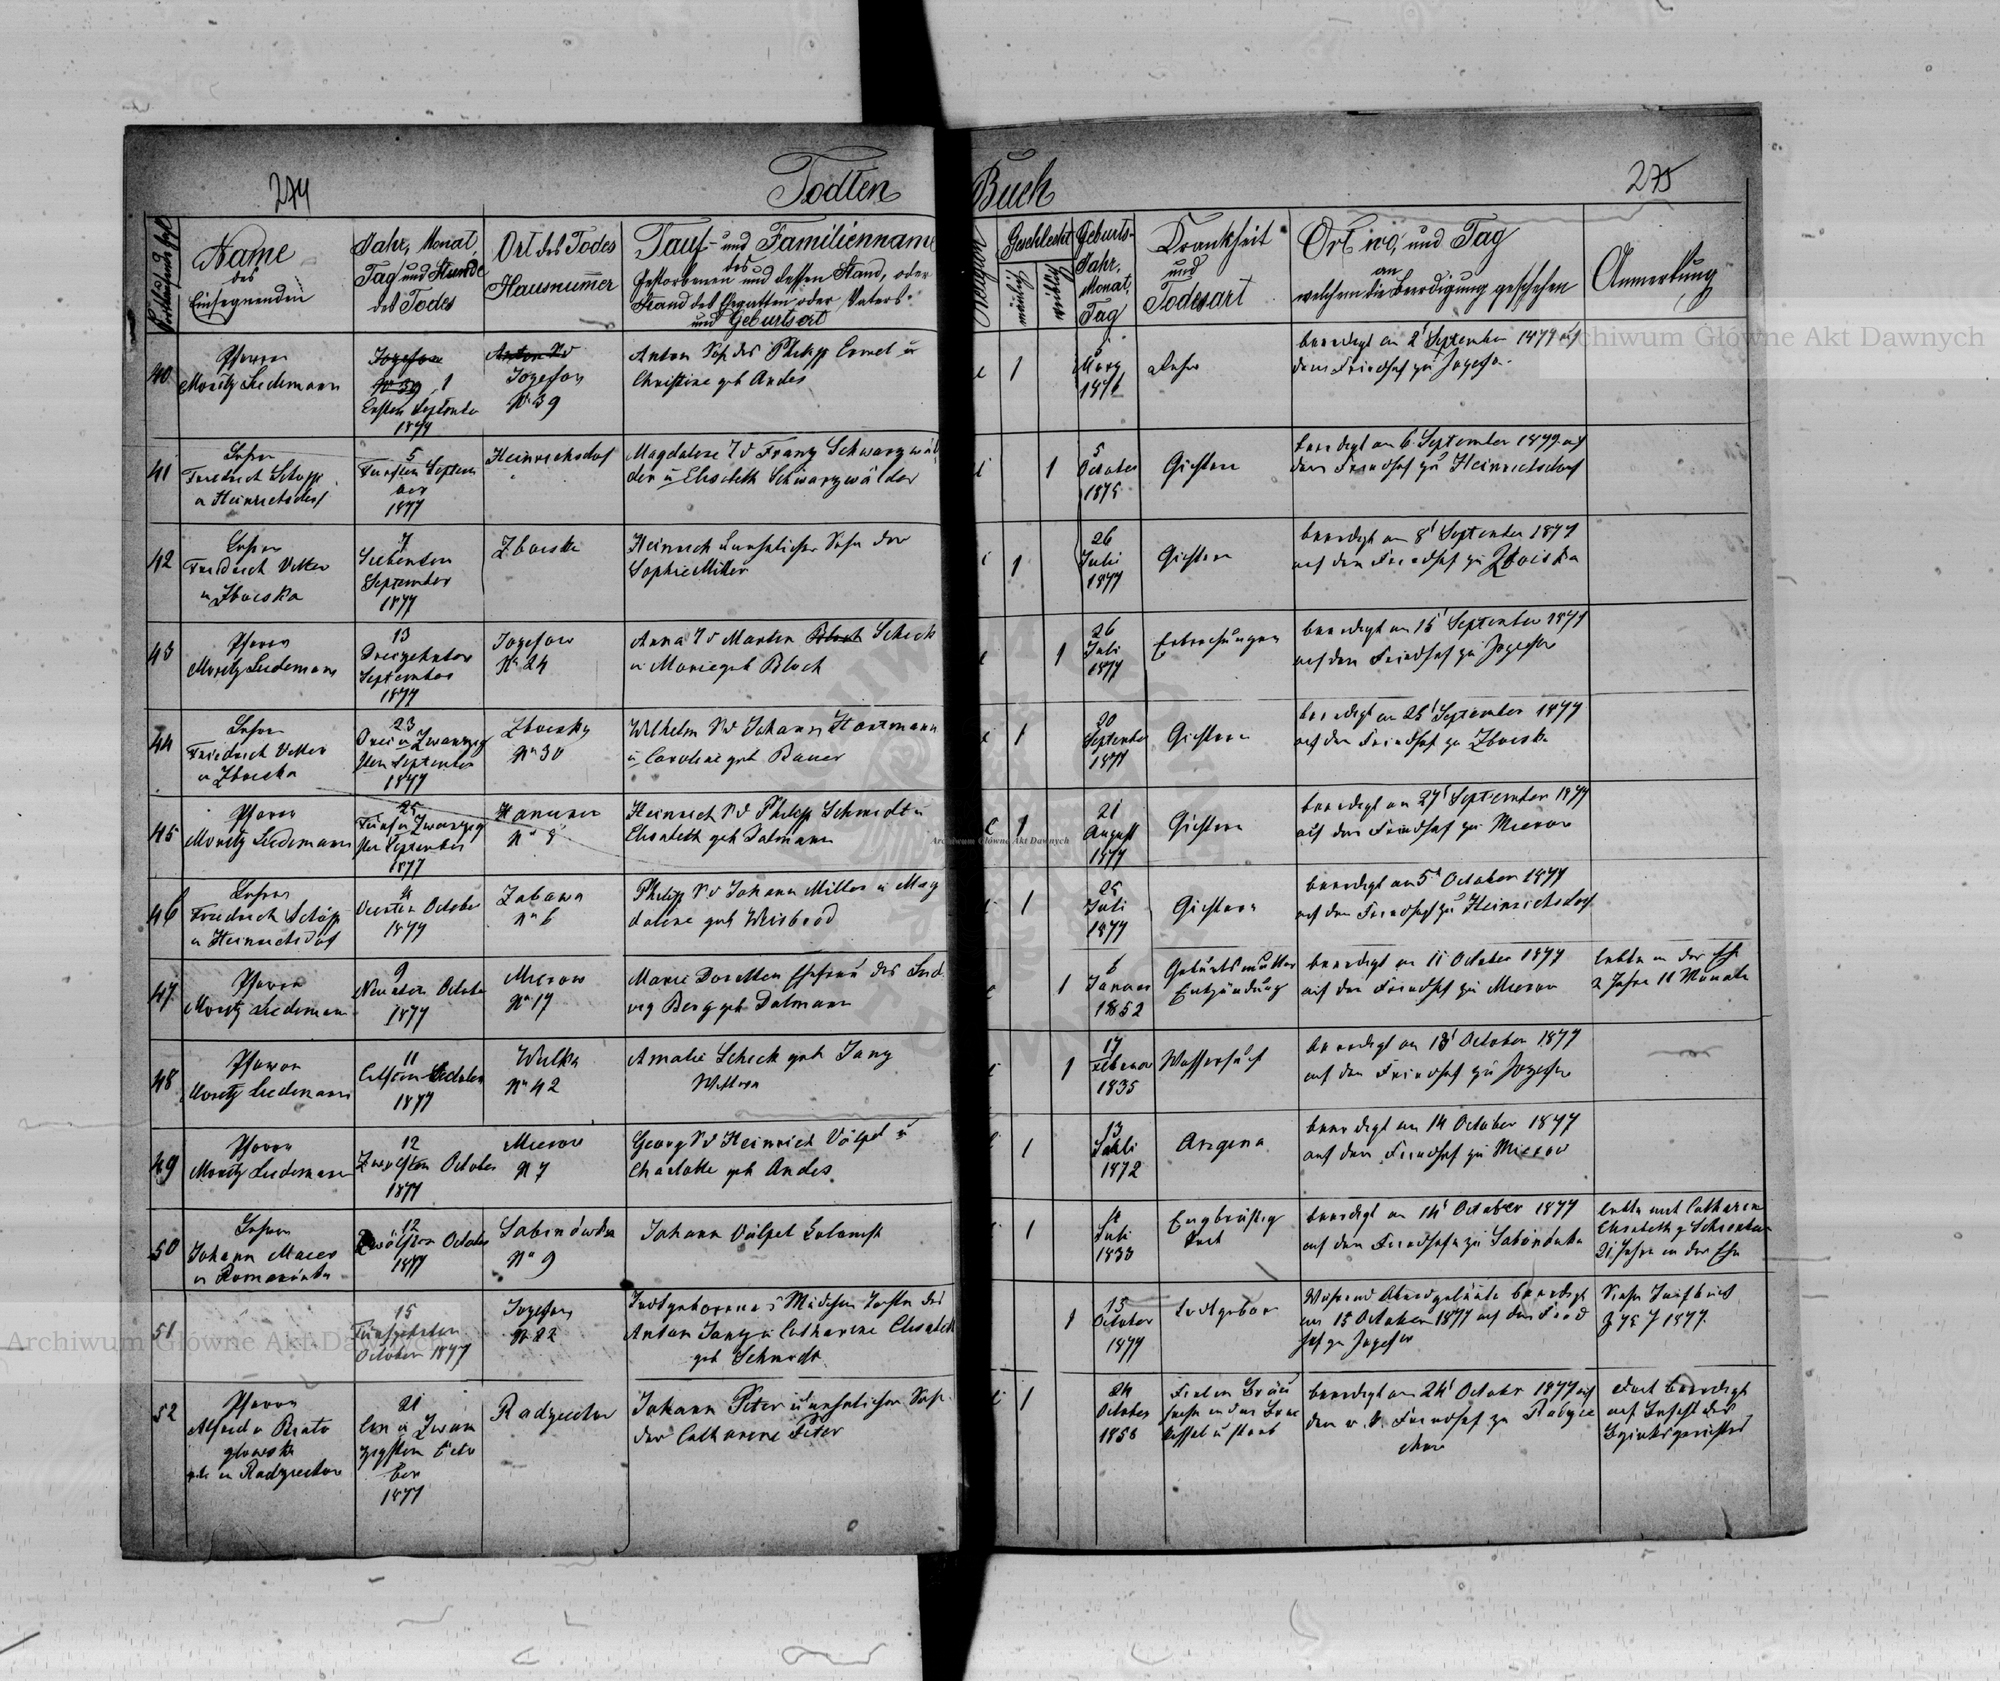 274
Todten Buch
275
Name
des
Einsegnenden
Jahr, Monat
Tag und Stunde
des Todes
Ort des Todes
Hausnummer
Tauf- und Familienname
des
Gestorbenen und dessen Stand, oder
Stand des Ehegatten oder Vaters
und Geburtsort
Religion
Geschlecht
männlich
weiblich
Geburts-
Jahr,
Monat,
Tag
Krankheit
und
Todesart
Ort und Tag
an
welchem die Beerdigung geschehen
Anmerkung
40
Pfarrer
Moritz Liedemann
1
Ersten September
1877
Jozefow
No 39
Anton Sohn des Philipp u
Christine geb Andes
1
März
1876
Ruhr
beerdigt am 2t September 1877 auf
dem Friedhof zu Jozefow
41
Lehrer
Friedrich Schöpp
in Heinrichsdorf
5
Fünften Septem
ber
1877
Heinrichsdorf
Magdalene T v Franz Schwarzwäl
der u Elisabeth Schwarzwälder
1
5
October
1875
Gichtern
beerdigt am 6 September 1877 auf
dem Friedhof zu Heinrichsdorf
42
Lehrer
Friedrich Vetter
in Zboiska
7
Siebenten
September
1877
Zboiska
Heinrich unehelicher Sohn der
Sophie Miller
1
26
Juli
1877
Gichtern
beerdigt am 8t September 1877
auf dem Friedhof zu Zboiska
43
Pfarrer
Moritz Liedemann
13
Dreizehnten
September
1877
Jozefow
No 24
Anna T v Martin Bloch Scheck
u Marie geb Bloch
1
26
Juli
1877
Erbrechungen
beerdigt am 15t September 1877
auf dem Friedhof zu Jozefow
44
Lehrer
Friedrich Vetter
in Zboiska
23
Drei u Zwanzig
sten September
1877
Zboiska
No 30
Wilhelm S v Johann Hartmann
u Caroline geb Bauer
1
20
September
1877
Gichtern
beerdigt am 25t September 1877
auf dem Friedhof zu Zboiska
45
Pfarrer
Moritz Liedemann
25
Fünf u Zwanzig
sten September
1877
Hanunin
Heinrich S v Philipp Schmidt u
Elisabeth geb Dalmann
e
1
21
August
1877
Gichtern
beerdigt am 27t September 1877
auf dem Friedhof zu Mierow
46
Lehrer
Friedrich Schöpp
in Heinrichsdorf
4
Vierten October
1877
Zabawa
No 6
Philipp S v Johann Miller u Mag
dalene geb Weisbrod
1
25
Juli
1877
Gichtern
beerdigt am 5t October 1877
auf dem Friedhof zu Heinrichsdorf
47
Pfarrer
Moritz Liedemann
9
Neunten October
1877
Mierow
No 17
Marie Dorothea Ehefrau des Lud
wig Berg geb Dalmann
1
6
Januar
1852
Gebärmutter
Entzündung
beerdigt am 11 October 1877
auf dem Friedhof zu Mierow
lebte in der Ehe
2 Jahre 11 Monate
48
Pfarrer
Moritz Liedemann
11
Elften October
1877
Wulka
No 42
Amalie Scheck geb Jang
Wittwe
1
17
Februar
1835
Wassersucht
beerdigt am 13t October 1877
auf dem Friedhof zu Jozefow
49
Pfarrer
Moritz Liedemann
12
Zwölften October
1877
Mierow
N 7
Georg S v Heinrich Völpel u
Charlotte geb Andes
1
13
Juli
1872
Angina
beerdigt am 14 October 1877
auf dem Friedhof zu Mierow
50
Lehrer
Johann Maier
in Romanówka
12
Zwölften October
1877
Sabinówka
No 9
Johann Völpel Colonist
1
Juli
1833
Engbrüstig
keit
beerdigt am 14t October 1877
auf dem Friedhofe zu Sabinówka
lebte mit Catharina
Elisabeth g
21 Jahre in der Ehe
51
15
Fünfzehnten
October 1877
Jozefow
No 22
Todtgeborenes Mädchen Tochter des
Anton Jang u Catharine Elisabeth
geb Schmidt
1
15
October
1877
todtgeboren
Während Abendgeläute beerdigt
am 15 October 1877 auf dem Fried
hof zu Jozefow
Siehe Taufbuch
Z 75 J 1877
52
Pfarrer
Alfred v
in Radziechow
21
Ein u Zwan
zigsten Octo
ber
1877
Radziechow
Johann Peter unehelicher Sohn
der Catharine Peter
1
24
October
1856
beerdigt am 24t October 1877 auf
dem Friedhof zu Radzie
chow
dort beerdigt
auf Befehl des
Bezirksgerichtes
Archiwum Główne Akt Dawnych
Archiwum Główne Akt Dawnych
Archiwum Główne Akt Dawnych